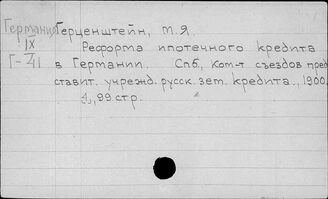 Германия
IX
Герценштейн, М.Я.
Реформа ипотечного кредита
в Германии. Спб., Ком-т съездов пред
ставит. учрежд. русск. зем. кредита., 1900.
99 стр.